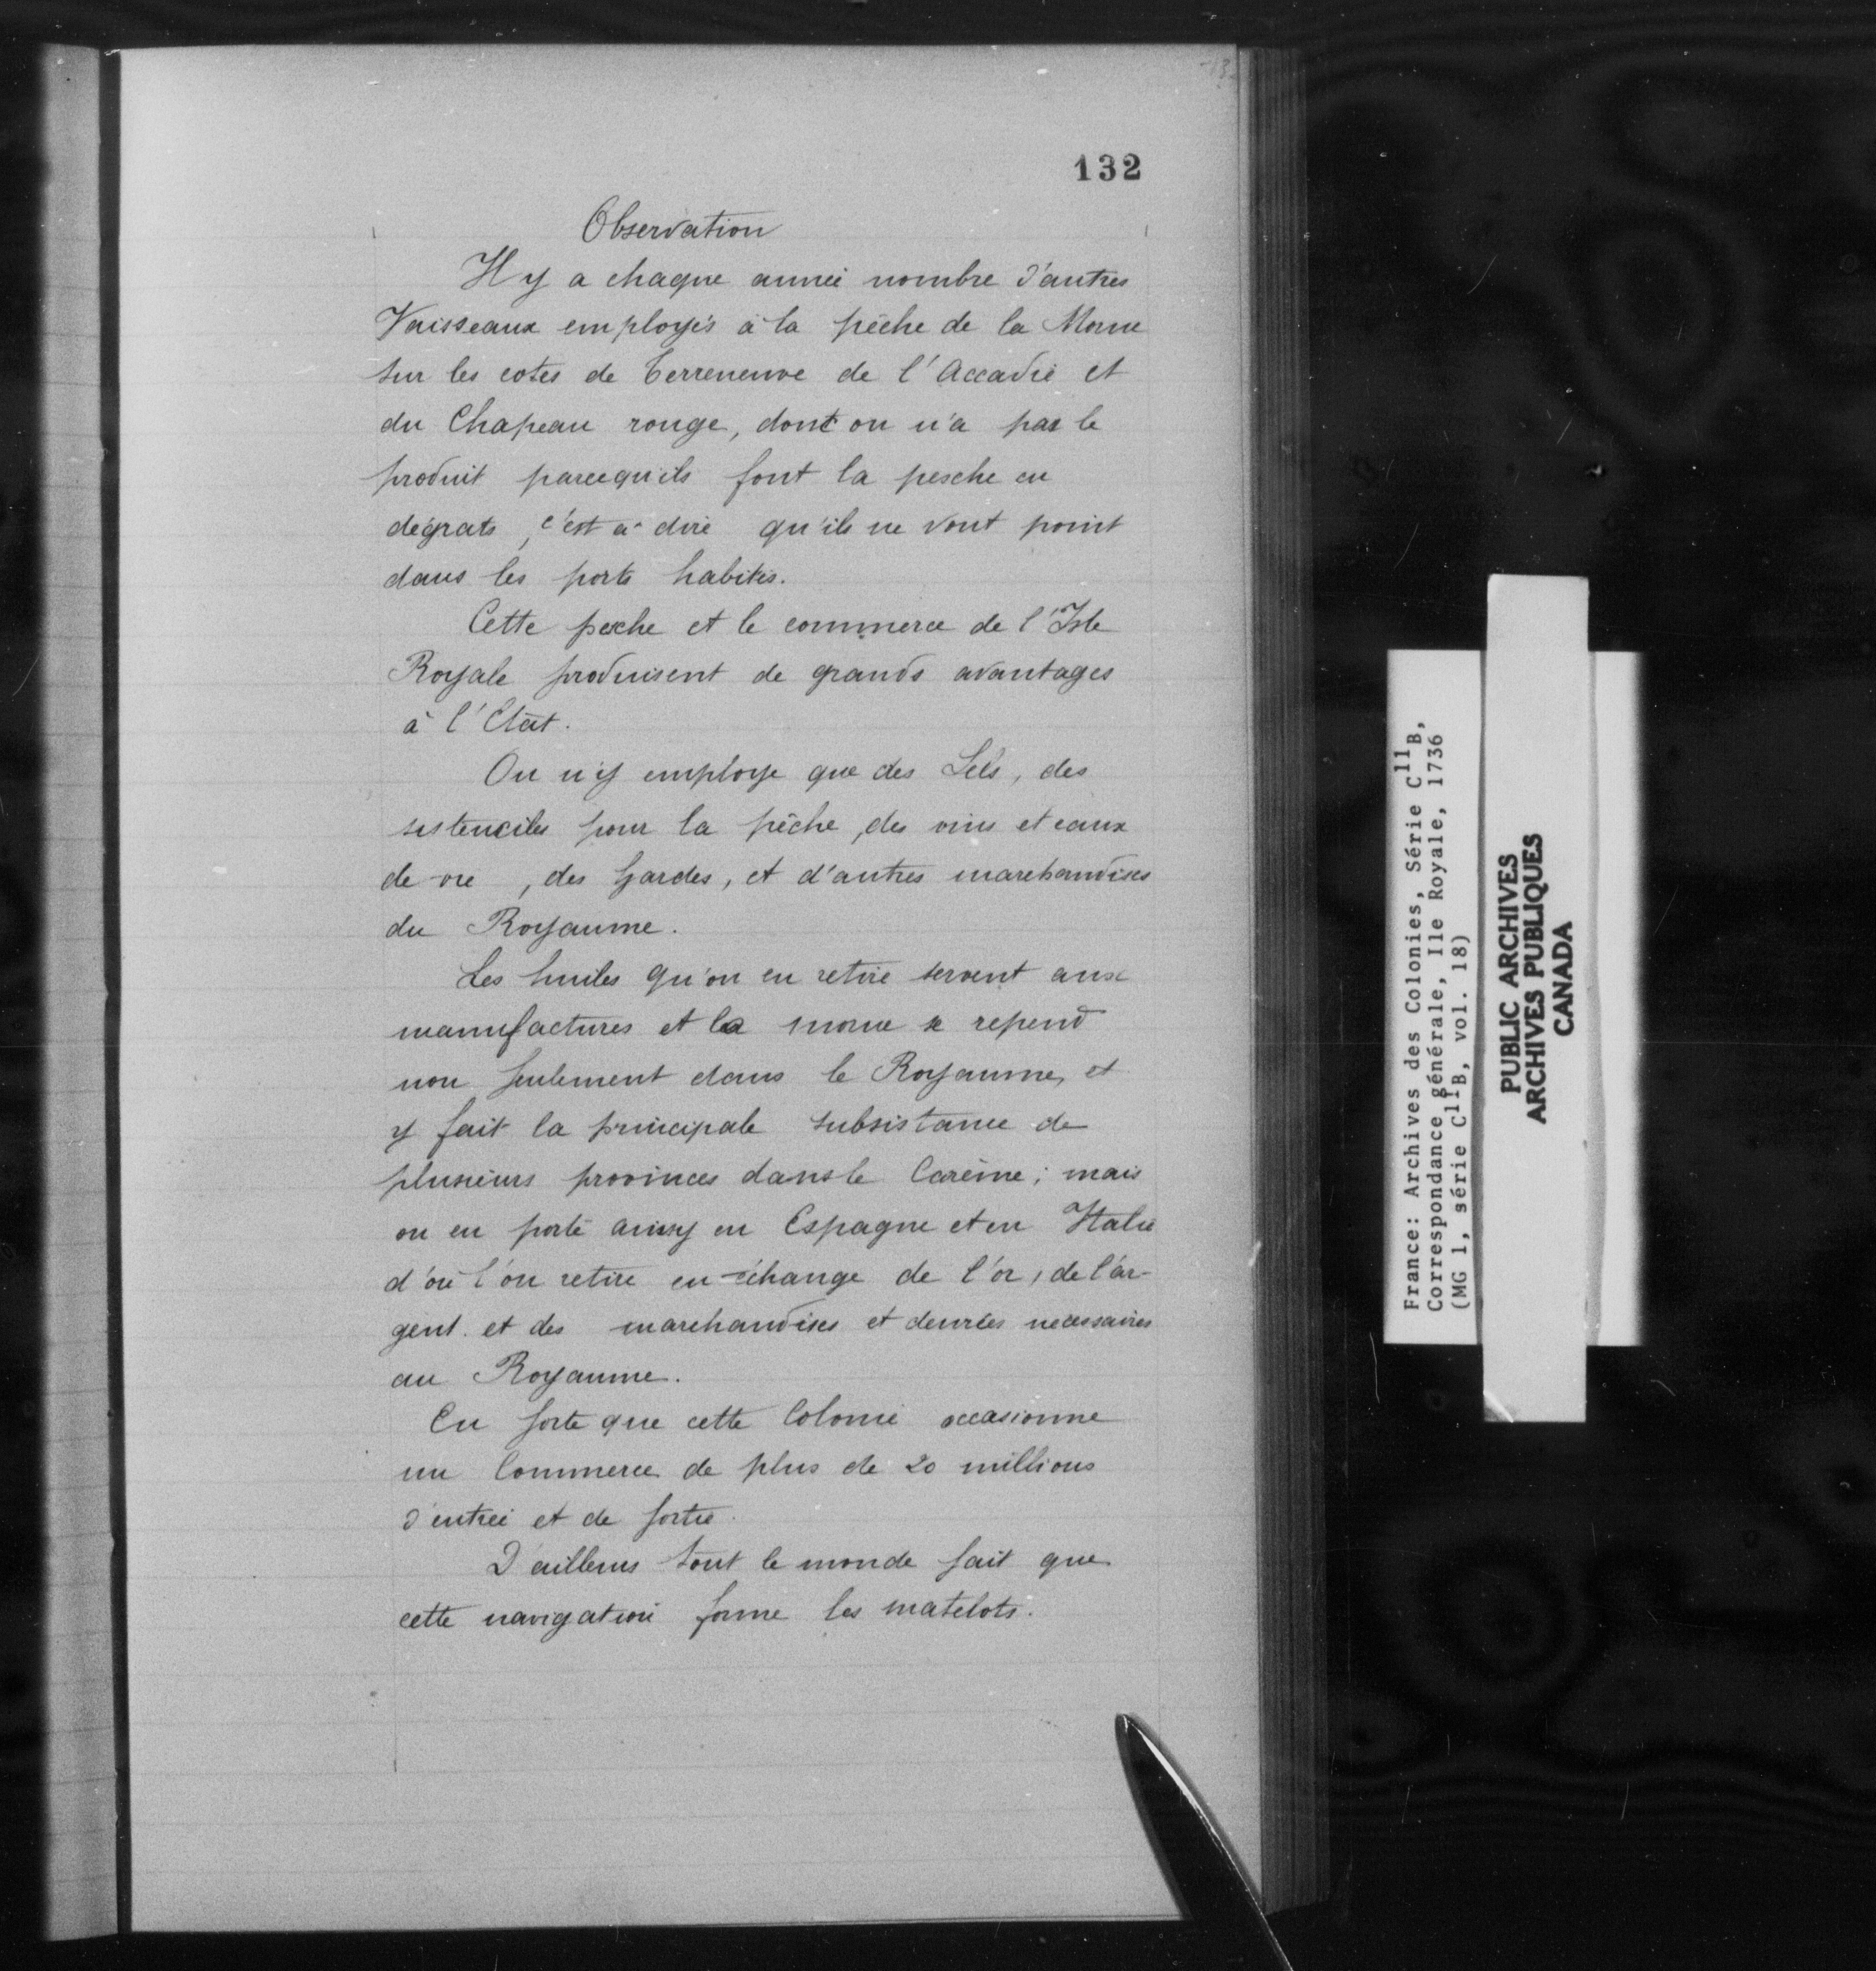 132
Observation
Il y a chaque année nombre d'autres
Vaisseaux employés à la pêche de la Morue
sur les cotes de Terreneuve de l'Accadie et
du Chapeau rouge, dont on n'a pas le
produit parcequ'ils font la pesche en
dégrats, c'est à dire qu'ils ne vont point
dans les ports habités.
Cette pesche et le commerce de l'Isle
Royale produisent de grands avantages
à l'Etat.
On n'y employe que des Sels, des
ustenciles pour la pêche, des vins et eaux
de vie, des hardes, et d'autres marchandises
du Royaume.
Les huiles qu'on en retire servent aux
manufactures et la morue se repend
non seulement dans le Royaume, et
y fait la principale subsistance de
plusieurs provinces dans le Carême; mais
on en porte aussy en Espagne et en Italie
d'où l'on retire en échange de l'or, de l'ar-
gent et des marchandises et denrées necessaires
au Royaume.
En sorte que cette Colonie occasionne
un Commerce de plus de 20 millions
d'entrée et de sortie.
D'ailleurs tout le monde sait que
cette navigation forme les matelots.
France: Archives des Colonies, Série C11B,
Correspondance générale, Ile Royale, 1736
(MG 1, série C11B, vol. 18)
PUBLIC ARCHIVES
ARCHIVES PUBLIQUES
CANADA